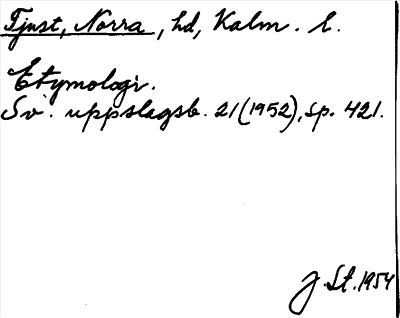 Tjust, Norra, hd, Kalm. l.
Etymologi.
Sv. uppslagsb. 21 (1952), sp. 421.
J St. 1954